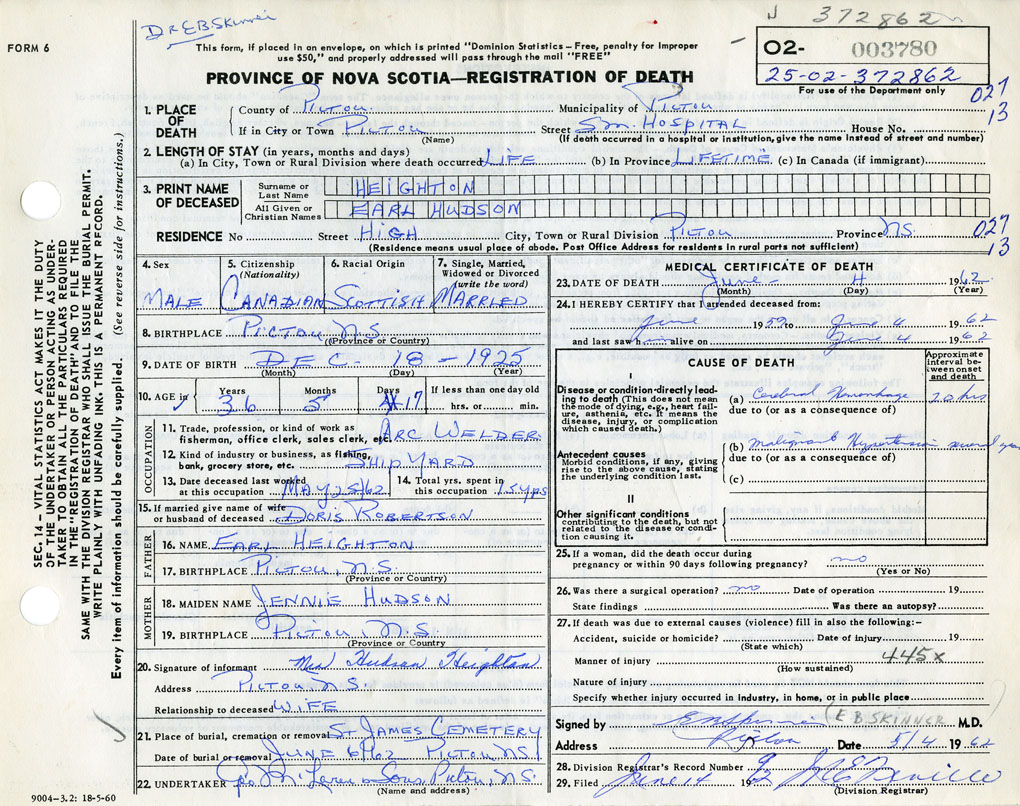 Dr E.B. Skinner
372862
FORM 6
This form, if placed in an envelope, on which is printed "Dominion Statistics – Free, penalty for improper
use $50," and properly addressed will pass through the mail "FREE"
PROVINCE OF NOVA SCOTIA—REGISTRATION OF DEATH
02- 003780
25-02-372862
For use of the Department only
027
13
1. PLACE OF DEATH
County of PICTOU Municipality of PICTOU
If in City or Town PICTOU Street SM. HOSPITAL House No.
(Name) (If death occurred in a hospital or institution, give the name instead of street and number)
2. LENGTH OF STAY (in years, months and days)
(a) In City, Town or Rural Division where death occurred LIFE (b) In Province LIFETIME (c) In Canada (if immigrant)
3. PRINT NAME OF DECEASED
Surname or Last Name HEIGHTON
All Given or Christian Names EARL HUDSON
RESIDENCE No Street HIGH City, Town or Rural Division PICTOU Province N.S.
027
13
(Residence means usual place of abode. Post Office Address for residents in rural parts not sufficient)
4. Sex 5. Citizenship (Nationality) 6. Racial Origin 7. Single, Married, Widowed or Divorced (write the word)
MALE CANADIAN SCOTTISH MARRIED
8. BIRTHPLACE PICTOU N.S.
(Province or Country)
9. DATE OF BIRTH DEC. 18 - 1925
(Month) (Day) (Year)
10. AGE in Years Months Days If less than one day old
36 5 17 hrs. or min.
OCCUPATION
11. Trade, profession, or kind of work as
fisherman, office clerk, sales clerk, etc. ARC WELDER
12. Kind of industry or business, as fishing,
bank, grocery store, etc. SHIP YARD
13. Date deceased last worked
at this occupation MAY 25/62
14. Total yrs. spent in
this occupation 15 yrs
15. If married give name of wife
or husband of deceased DORIS ROBERTSON
FATHER
16. NAME EARL HEIGHTON
17. BIRTHPLACE PICTOU, N.S.
(Province or Country)
MOTHER
18. MAIDEN NAME JENNIE HUDSON
19. BIRTHPLACE PICTOU N.S.
(Province or Country
20. Signature of informant Mrs Hudson Heighton
Address PICTOU N.S.
Relationship to deceased WIFE
21. Place of burial, cremation or removal ST JAMES CEMETERY
Date of burial or removal JUNE 6/62 PICTOU N.S.
22. UNDERTAKER Geo McLaren & Sons, Pictou, N.S.
(Name and address)
MEDICAL CERTIFICATE OF DEATH
23. DATE OF DEATH June 4 1962
(Month) (Day) (Year)
24. I HEREBY CERTIFY that I attended deceased from:
June 1959 to June 4 1962
and last saw him alive on June 4 1962
CAUSE OF DEATH
Approximate interval between onset and death
I
Disease or condition directly leading
to death (This does not mean
the mode of dying, e.g., heart failure,
asthenia, etc. It means the
disease, injury, or complication
which caused death.)
(a) Cerebral Hemorrhage 20 hrs
due to (or as a consequence of)
Antecedent causes
Morbid conditions, if any, giving
rise to the above cause, stating
the underlying condition last.
(b) malignant Hypertension several years
due to (or as a consequence of)
(c)
II
Other significant conditions
contributing to the death, but not
related to the disease or condition
causing it.
25. If a woman, did the death occur during
pregnancy or within 90 days following pregnancy? no
(Yes or No)
26. Was there a surgical operation? no Date of operation 19
State findings Was there an autopsy?
27. If death was due to external causes (violence) fill in also the following:-
Accident, suicide or homicide? Date of injury 19
(State which)
445x
Manner of injury
(How sustained)
Nature of injury
Specify whether injury occurred in industry, in home, or in public place
Signed by (E B SKINNER M.D.
Address Pictou Date 5/4 1962
28. Division Registrar's Record Number
29. Filed June 14 19
(Division Registrar)
SEC. 14 – VITAL STATISTICS ACT MAKES IT THE DUTY
OF THE UNDERTAKER OR PERSON ACTING AS UNDERTAKER
TO OBTAIN ALL THE PARTICULARS REQUIRED
IN THE "REGISTRATION OF DEATH" AND TO FILE THE
SAME WITH THE DIVISION REGISTRAR WHO SHALL ISSUE THE BURIAL PERMIT.
WRITE PLAINLY WITH UNFADING INK. THIS IS A PERMANENT RECORD.
Every item of information should be carefully supplied. (See reverse side for instructions.)
9004-3.2: 18-5-60